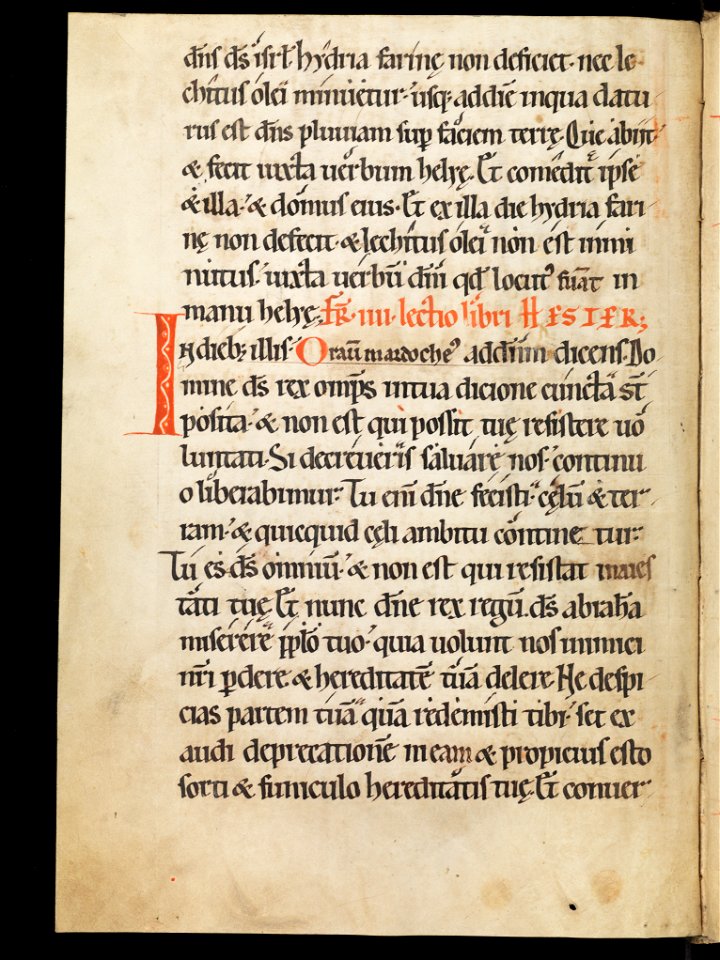 dn̄s ds̄ isrł hydria farinę non deficiet· nec le
chitus olei minuetur· usq; addiē inqua datu
rus est dn̄s pluuiam sup̱ faciem terrę. Que abiit·
& fecit iuxta uerbum helyę. Et comedit ipse
& illa· & domus eius· Et ex illa die hydria fari
nę non defecit· & lechitus olei non est immi
nutus· iuxta uerbū dn̄i qđ locut᾽ fuāt in
manu helyę; Fr̄· iiii· lectio libri HESTER;
In dieb; illis· Orauit mardoche᾽ addn̄m dicens. Do
mine ds̄ rex omp̄s intua dicione cuncta st̄
posita· & non est qui possit tuę resistere uo
luntati· Si decreueris saluare nos· continu
o liberabimur· Tu eni dn̄e fecisti cęlū & ter
ram· & quicquid cęli ambitu contine tur·
Tu es ds̄ omniū· & non est qui resistat maies
tati tuę Et nunc dn̄e rex regū. ds̄ abrahā
miserere pp̄lo tuo· quia uolunt nos inimici
nr̄i p̱dere· & hereditatē tuā delere· Ne despi
cias partem tuā quā redemisti tibi· set ex
audi deprecationē meam & propicius esto
sorti & funiculo hereditatis tuę· Et conuer